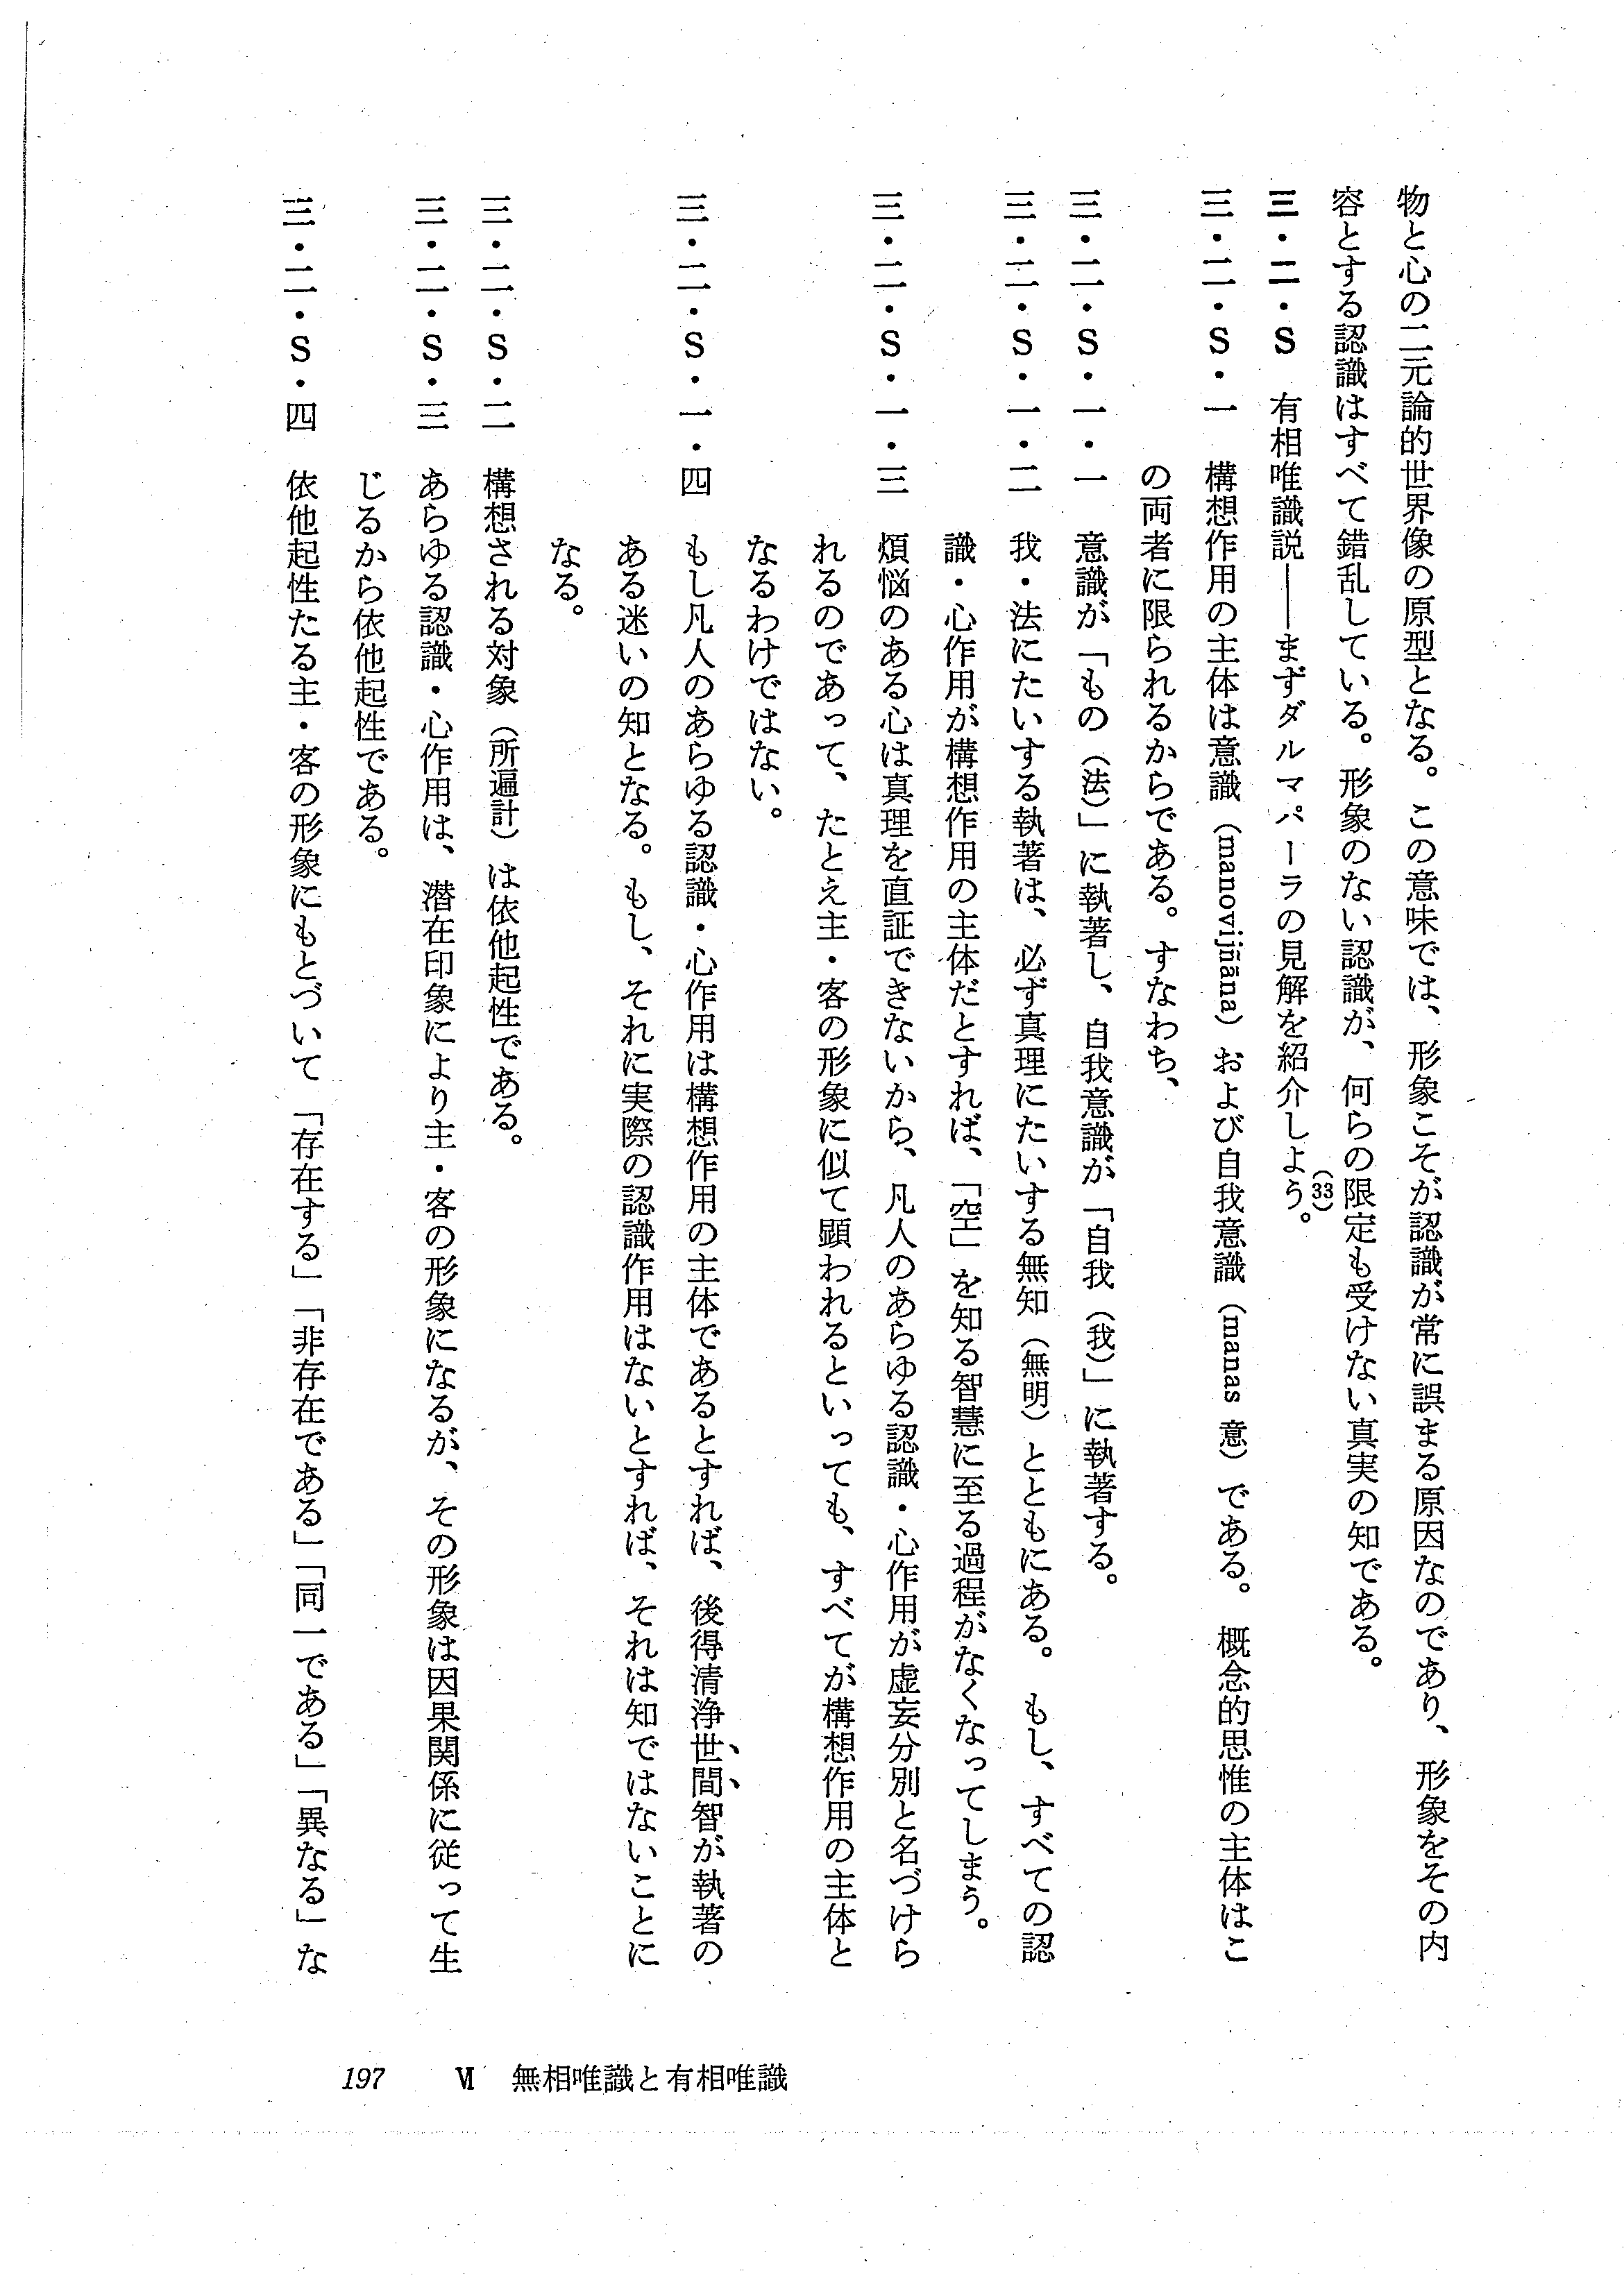 物と心の二元論的世界像の原型となる。この意味では、形象こそが認識が常に誤まる原因なのであり、形象をその内
容とする認識はすべて錯乱している。形象のない認識が、何らの限定も受けない真実の知である。
三・二・S　有相唯識説――まずダルマパーラの見解を紹介しよう。(33)
三・二・S・一　構想作用の主体は意識（manovijñāna）および自我意識（manas 意）である。概念的思惟の主体はこ
の両者に限られるからである。すなわち、
三・二・S・一・一　意識が「もの（法）」に執著し、自我意識が「自我（我）」に執著する。
三・二・S・一・二　我・法にたいする執著は、必ず真理にたいする無知（無明）とともにある。もし、すべての認
識・心作用が構想作用の主体だとすれば、「空」を知る智慧に至る過程がなくなってしまう。
三・二・S・一・三　煩悩のある心は真理を直証できないから、凡人のあらゆる認識・心作用が虚妄分別と名づけら
れるのであって、たとえ主・客の形象に似て顕われるといっても、すべてが構想作用の主体と
なるわけではない。
三・二・S・一・四　もし凡人のあらゆる認識・心作用は構想作用の主体であるとすれば、後得清浄世間智が執著の
ある迷いの知となる。もし、それに実際の認識作用はないとすれば、それは知ではないことに
なる。
三・二・S・二　構想される対象（所遍計）は依他起性である。
三・二・S・三　あらゆる認識・心作用は、潜在印象により主・客の形象になるが、その形象は因果関係に従って生
じるから依他起性である。
三・二・S・四　依他起性たる主・客の形象にもとづいて「存在する」「非存在である」「同一である」「異なる」な
197　Ⅵ　無相唯識と有相唯識